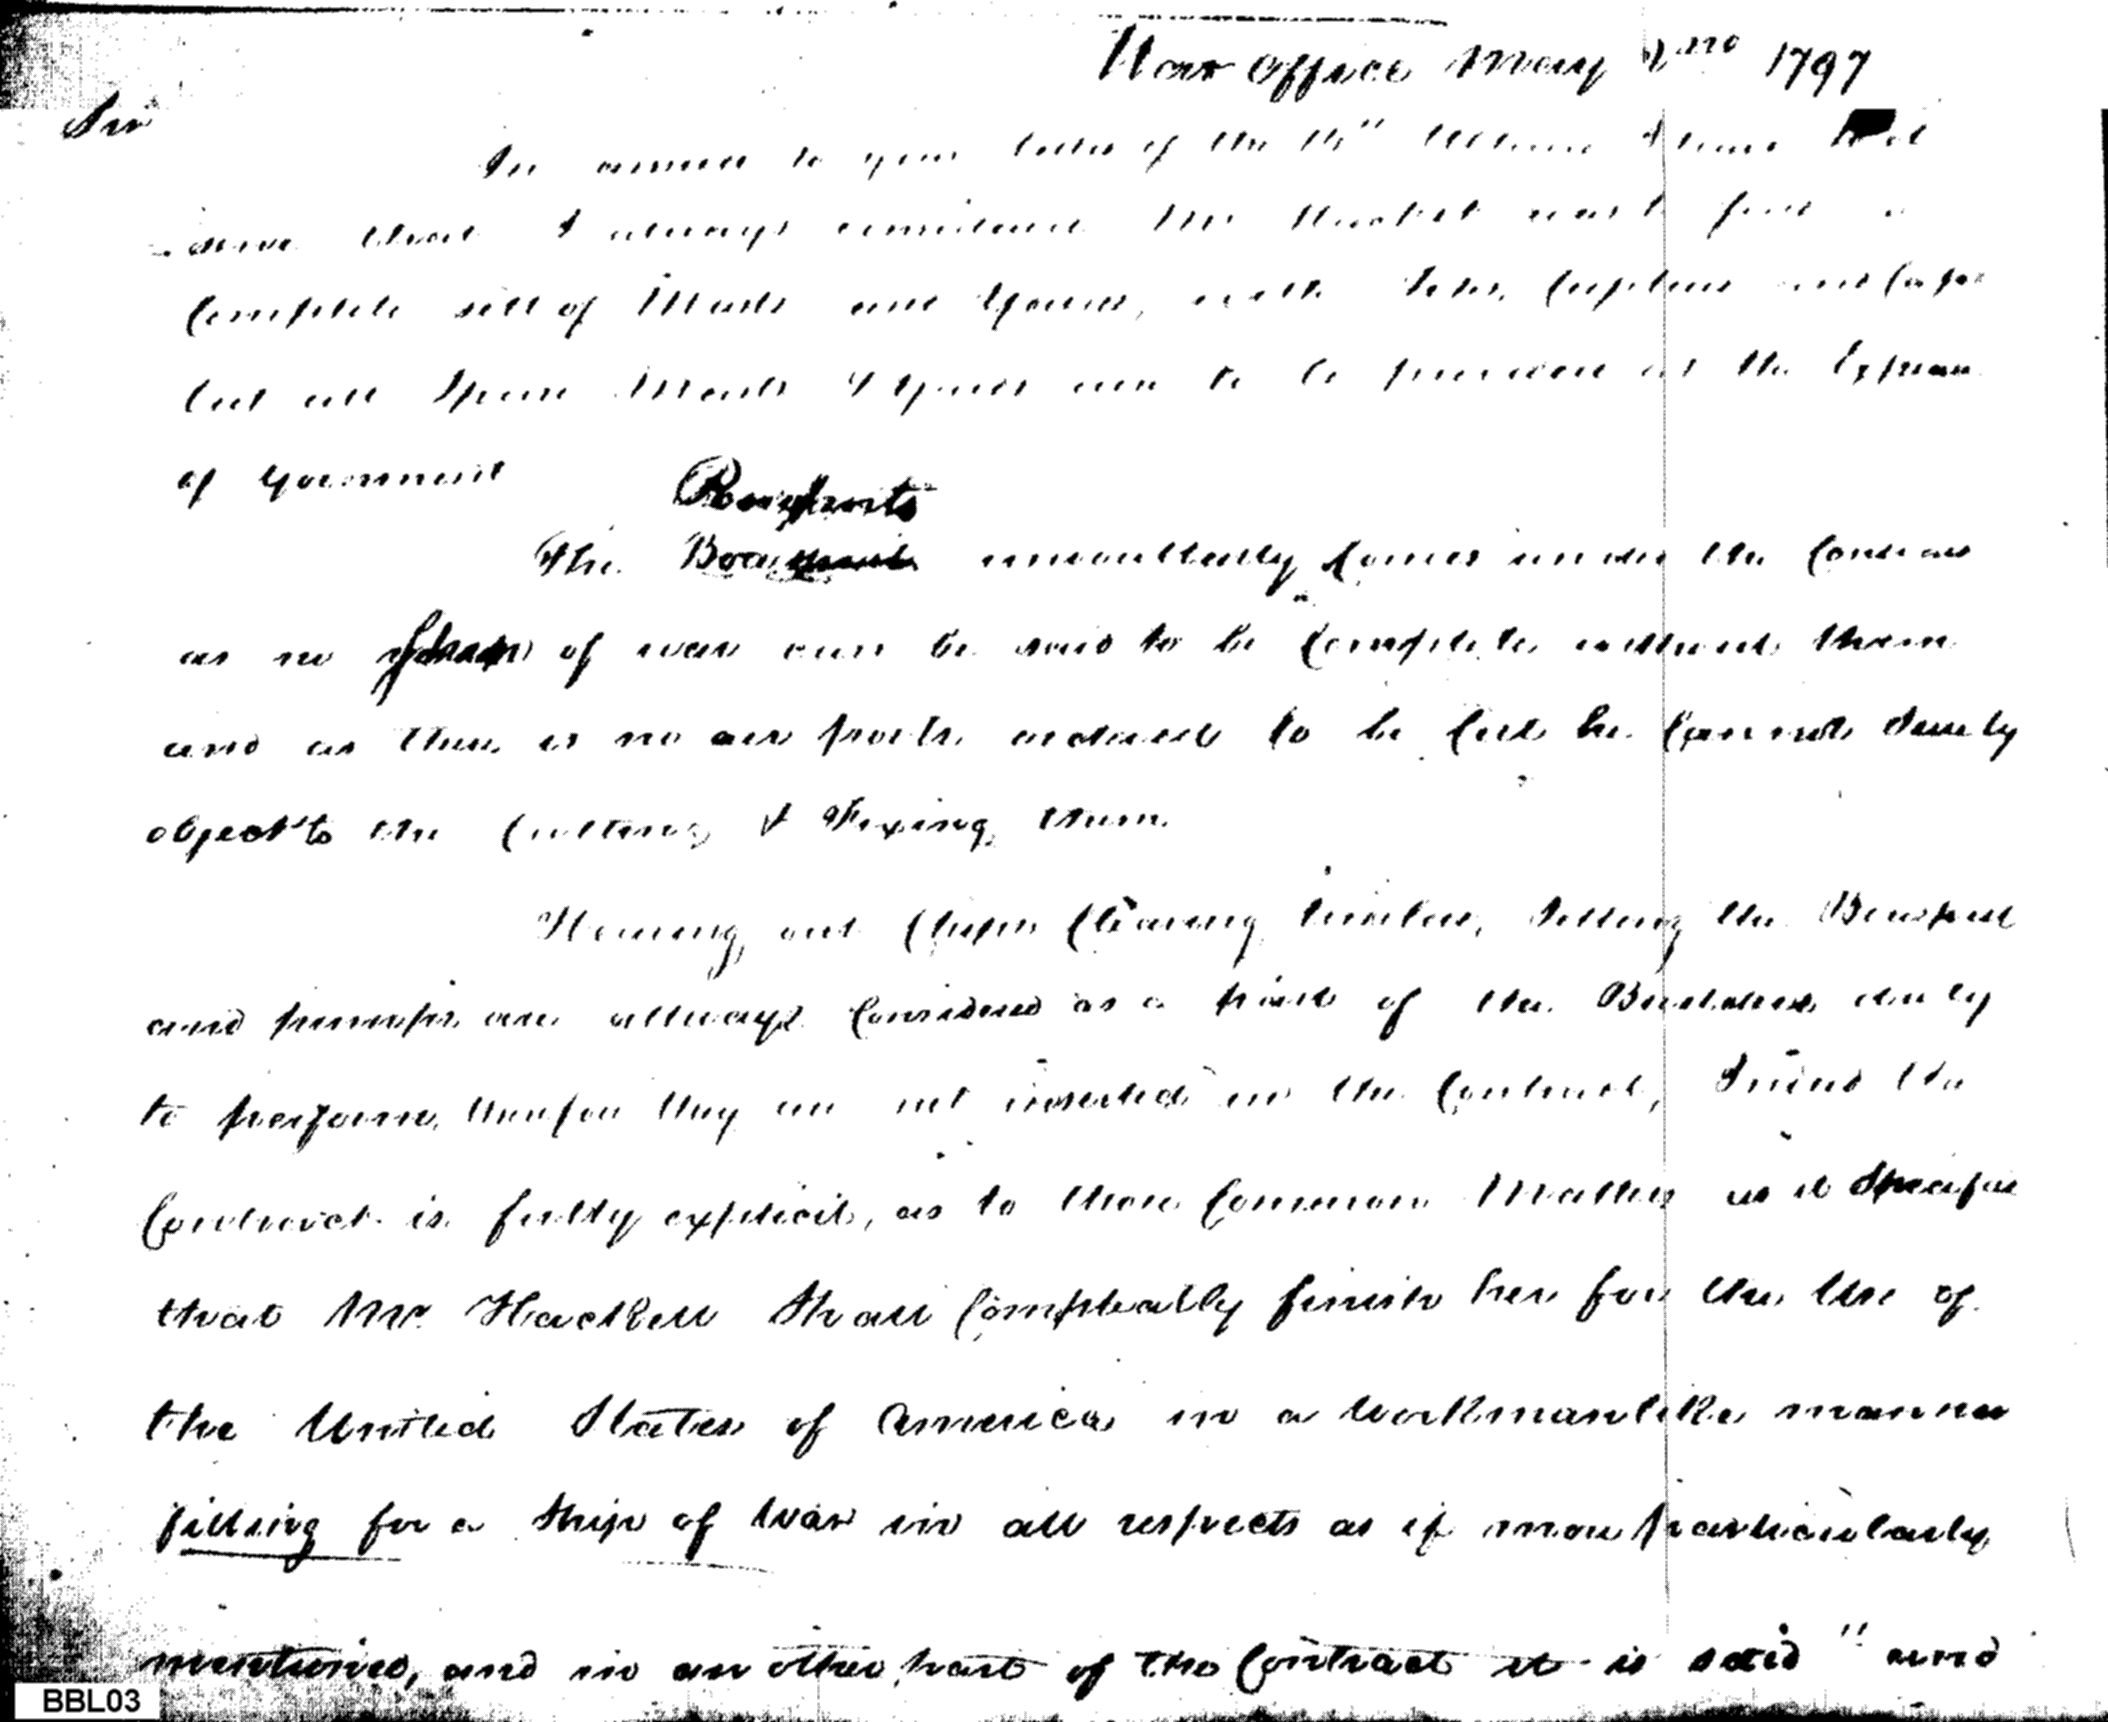 War office May 2nd 1797
Sir
In answer to your letter of the 18th Ultimo I have to ob
-serve that I always considered Mr Hacket was to find a
Complete sett of Masts and Yards, with Tops, Caps
but all Spare Masts & Yards are to be procured at the Expence
of Government
Bowsprits
The undoubtedly Comes under the Contract
as no Ship of war can be said to be Complete without them
and as there is no air ports ordered to be Cut he Cannot surely
object to the Cutting & Fixing them
Hawing out Chips Clearing timber, Setting the Bowsprit
and pumps are allways Considered as a part of the Builders duty
to perform, therefore they are not inserted in the Contract, Indeed the
Contract is fully explicit, as to those Common Matters as it Specifies
that Mr Hackett Shall Compleatly finish her for the Use of
the United States of America in a workmanlike manner
fitting for a Ship of War in all respects as if more particularly
mentioned, and in an other part of the Contract it is said " and
BBL03